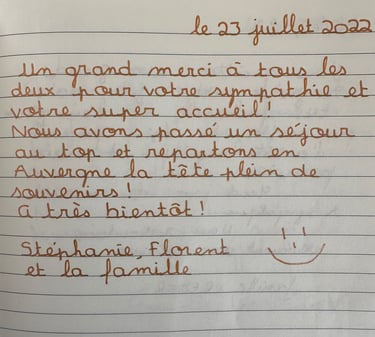 le 23 juillet 2022
Un grand merci à tous les
deux pour votre sympathie et
votre super accueil!
Nous avons passé un séjour
au top et repartons en
Auvergne la tête plein de
souvenirs!
à très bientôt!
Stéphanie, Florent
et la famille